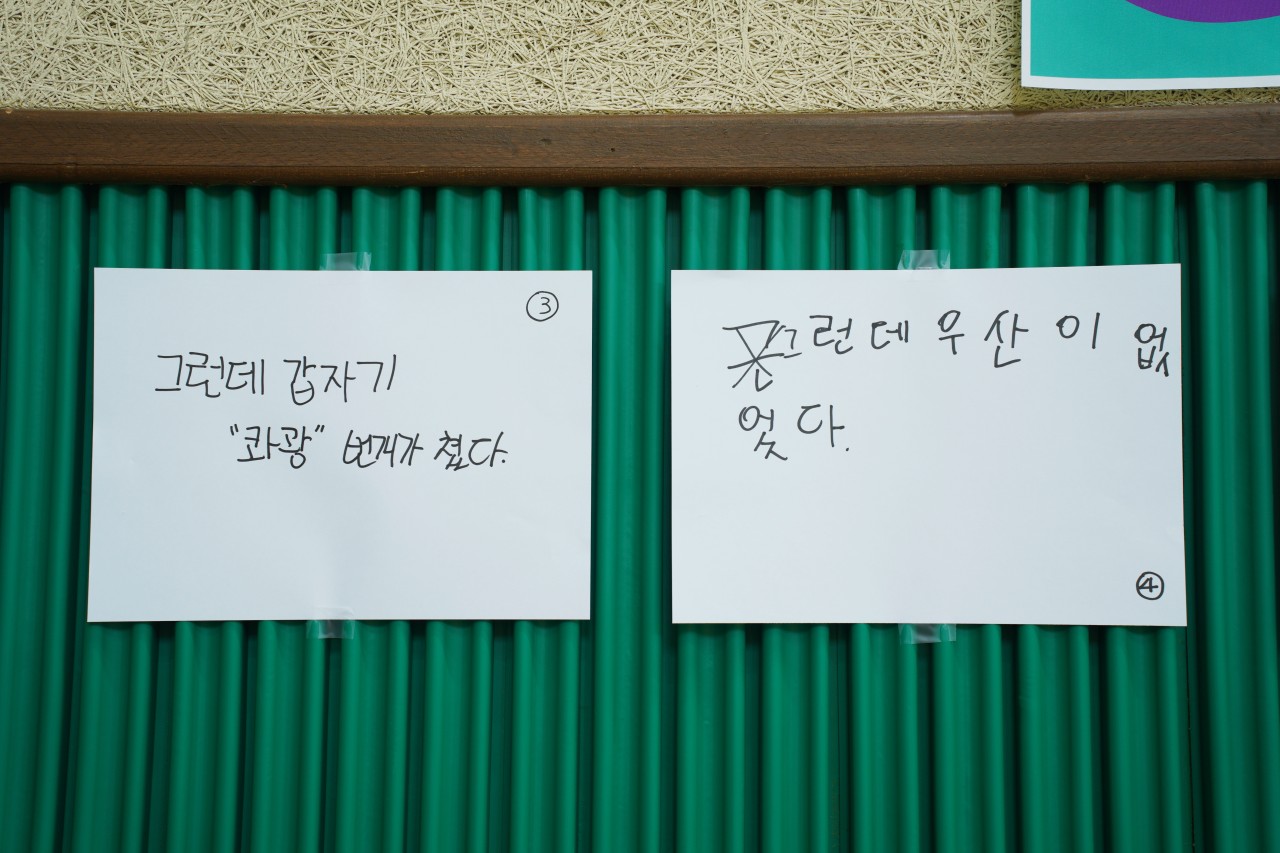 ③
그런데 갑자기
"콰광" 번개가 쳤다.
그런데 우산이 없
었다.
④